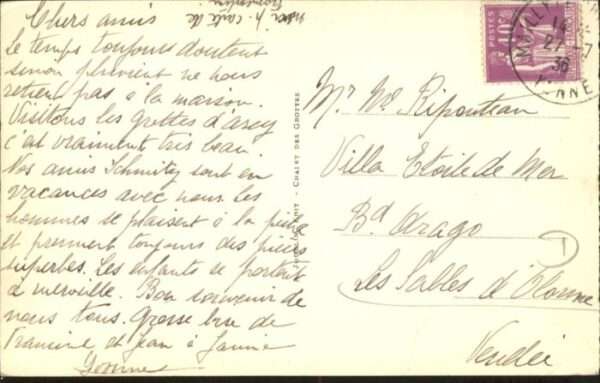 Chers amis
Le temps toujours doutent
sinon pluvieux ne nous
retient pas à la maison.
Visitons les grottes d'arcy
c'est vraiment très beau.
Nos amis Schmitz sont en
vacances avec nous les
hommes se plaisent à la
et prennent toujours des
superbes. Les enfants se portent
à merveille. Bon souvenir de
nous tous. Grosse bise de
Francine et Jean à Jannie
Yvonne
merci p. carte de
CHALET DES GROTTES
Mr Me Ripouteau
Villa Etoile de Mer
Bd Arago
Les Sables d'Olonne
Vendée
27-7
36